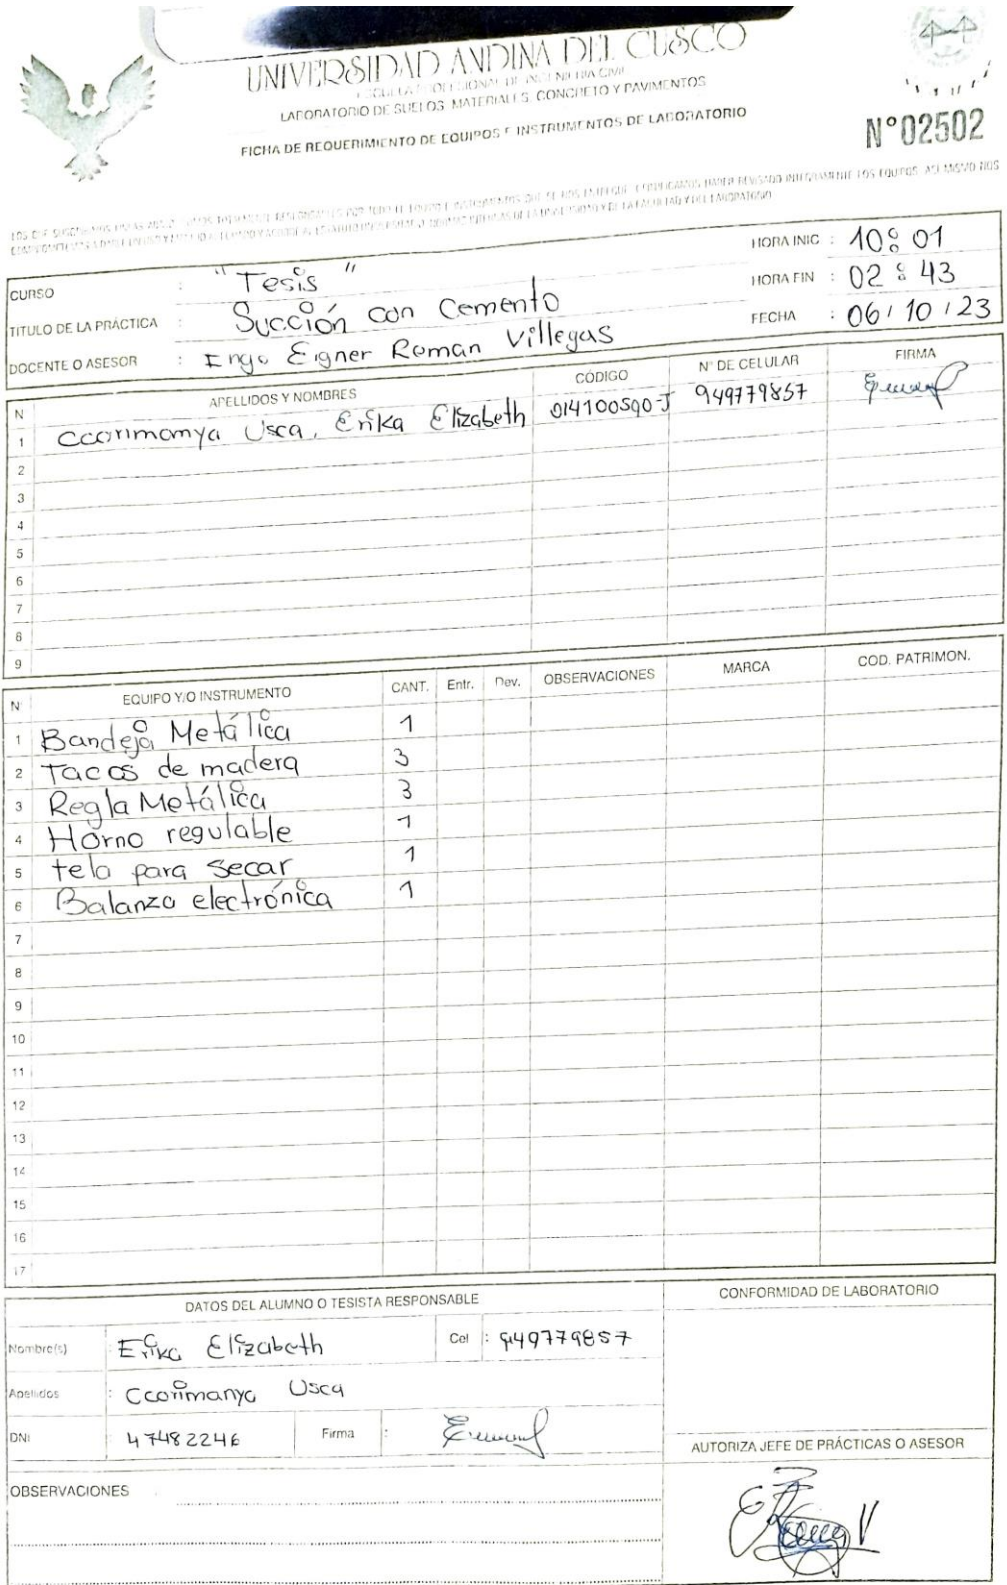 UNIVERSIDAD ANDINA DEL CUSCO
ESCUELA PROFESIONAL DE INGENIERIA CIVIL
LABORATORIO DE SUELOS, MATERIALES, CONCRETO Y PAVIMENTOS
FICHA DE REQUERIMIENTO DE EQUIPOS E INSTRUMENTOS DE LABORATORIO
N°02502
CURSO : "Tesis"
HORA INIC : 10:01
TITULO DE LA PRÁCTICA : Succión con Cemento
HORA FIN : 02:43
DOCENTE O ASESOR : Ingo Eigner Roman Villegas
FECHA : 06/10/23
N APELLIDOS Y NOMBRES CÓDIGO N° DE CELULAR FIRMA
1 Ccorimanya Usca, Erika Elizabeth 014100590-J 949779857
2
3
4
5
6
7
8
9
N° EQUIPO Y/O INSTRUMENTO CANT. Entr. Dev. OBSERVACIONES MARCA COD. PATRIMON.
1 Bandeja Metálica 1
2 Tacos de madera 3
3 Regla Metálica 3
4 Horno regulable 1
5 tela para secar 1
6 Balanza electrónica 1
7
8
9
10
11
12
13
14
15
16
17
DATOS DEL ALUMNO O TESISTA RESPONSABLE
CONFORMIDAD DE LABORATORIO
Nombre(s) : Erika Elizabeth Cel : 949779857
Apellidos : Ccorimanya Usca
DNI 47482246 Firma :
AUTORIZA JEFE DE PRÁCTICAS O ASESOR
OBSERVACIONES :